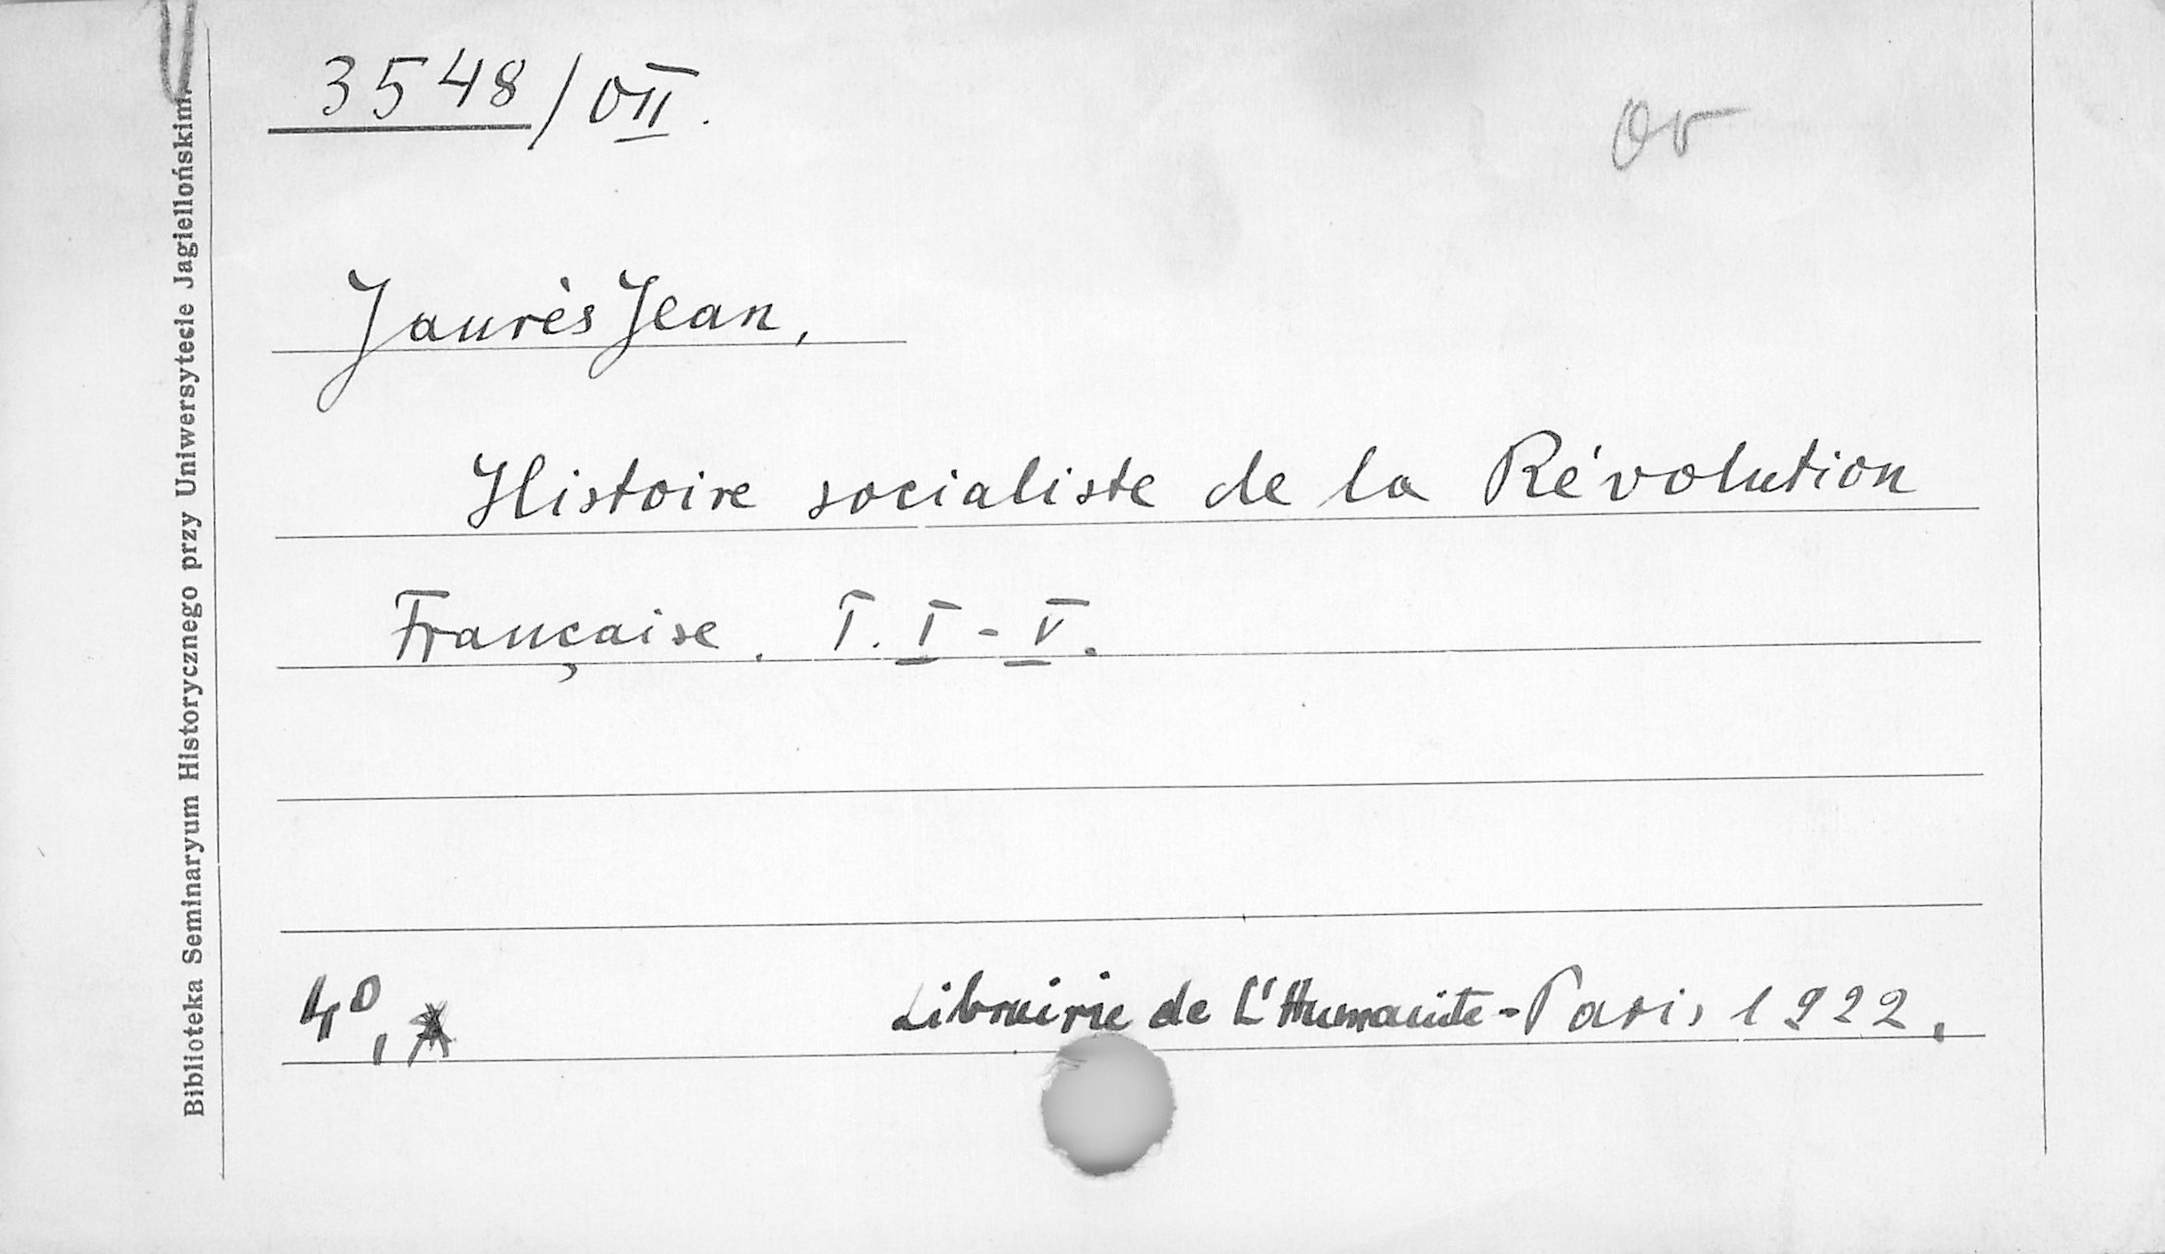 3548/OII.
or
Jaurès Jean,
Histoire socialiste de la Révolution
Française. T. I - V.
4°,
Librairie de L'Humanite - Paris 1922.
Biblioteka Seminaryum Historycznego przy Uniwersytecie Jagiellońskim.